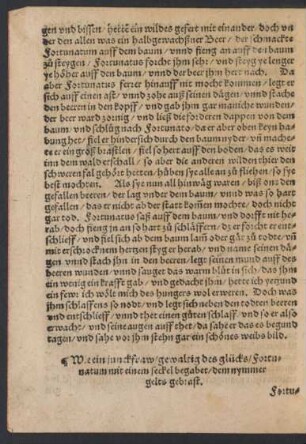 gen vnd bissen / hette ein wildes gefert mit einander. doch vn
der den allen was ein halbgewachsner Beer / der schmackte
Fortunatum auff dem baum / vnnd fieng an auff den baum
zů steygen / Fortunatus forcht jhm sehr / vnd steyg ye lenger
ye höher auff den baum / vnnd der beer jhm hert nach. Da
aber Fortunatus ferrer hinauff nit mocht kommen / legt er
sich auff einen ast / vnnd zohe auß seinen dägen / vnnd stache
den beeren in den kopff / vnd gab jhm gar maniche wunden /
der beer ward zornig / vnd ließ die forderen dappen von dem
baum / vnd schlůg nach Fortunato / da er aber oben keyn hafftung
het / fiel er hindersich durch den baum nyder / vñ machete
er ein groß brastlen / fiel so hert auff den boden / das es weit
inn dem wald erschall / so aber die anderen wilden thier den
schweren fal gehört hetten / hůben sye alle an zů fliehen / so sye
best mochten. Als sye nun all hinwäg waren / biß on den
gefallen beeren / der lag vnder dem baum / vnnd was so hart
gefallen / das er nicht ab der statt kommen mochte / doch nicht
gar tod. Fortunatus saß auff dem baum / vnd dorfft nit herab /
doch fieng jn an so hart zů schläffern / dz er forcht er entschlieff /
vnd fiel sich ab dem baum
mit erschrocknem hertzen styg er herab / vnnd nam seinen dägen /
vnnd stach jhn in den beeren / legt seinen mund auff des
beeren wunden / vnnd sauget das warm blůt in sich / das jhm
ein wenig ein krafft gab / vnd gedacht jhm / hette ich yetzund
ein fewr ich wölt mich des hungers wol erweren. Doch was
jhm schlaffens so nodt / vnd legt sich neben den todten beeren
vnnd entschlieff / vnnd thet einen gůten schlaff / vnd so er also
erwacht / vnd seine augen auff thet / da sahe er das es begund
tagen / vnd sahe vor jhm stehn gar ein schönes weibs bild.
¶ Wie ein junckfraw / gewaltig des glücks / Fortunatum
mit einem seckel begabet / dem nymmer
gelts gebrast.
Fortu-